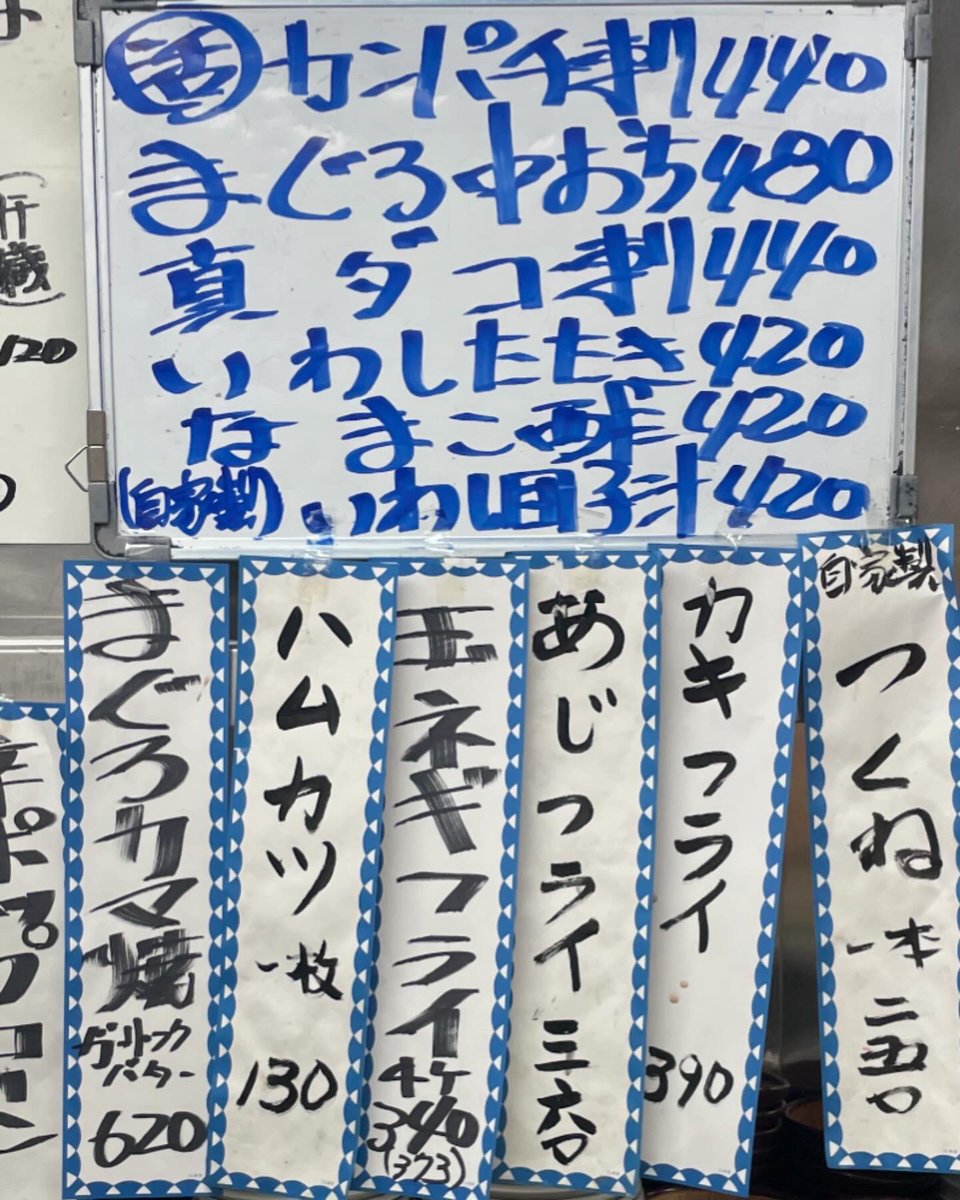 活 カンパチ刺 440
まぐろ中おち 480
真ダコ刺 440
いわしたたき 420
なまこ酢 420
(自家製)いわし団子汁 420
自家製
つくね
一本
二五〇
カキフライ
390
あじフライ
三六〇
玉ネギフライ
4ケ
340
(373)
ハムカツ
一枚
130
まぐろカマ焼
ガーリック
バター
620
120